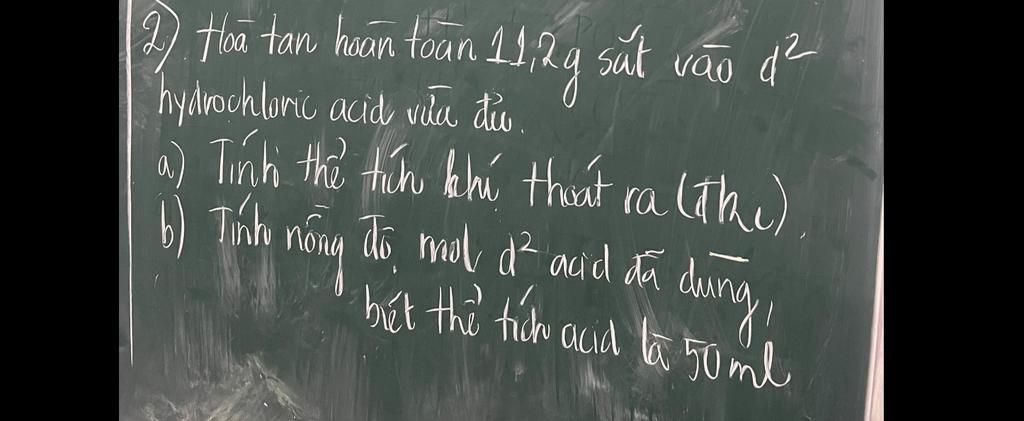 2) Hoà tan hoàn toàn 11,2g sắt vào d²
hydrochloric acid vừa đủ.
a) Tính thể tích khí thoát ra (Đkc).
b) Tính nồng độ mol d² acid đã dùng,
biết thể tích acid là 50ml